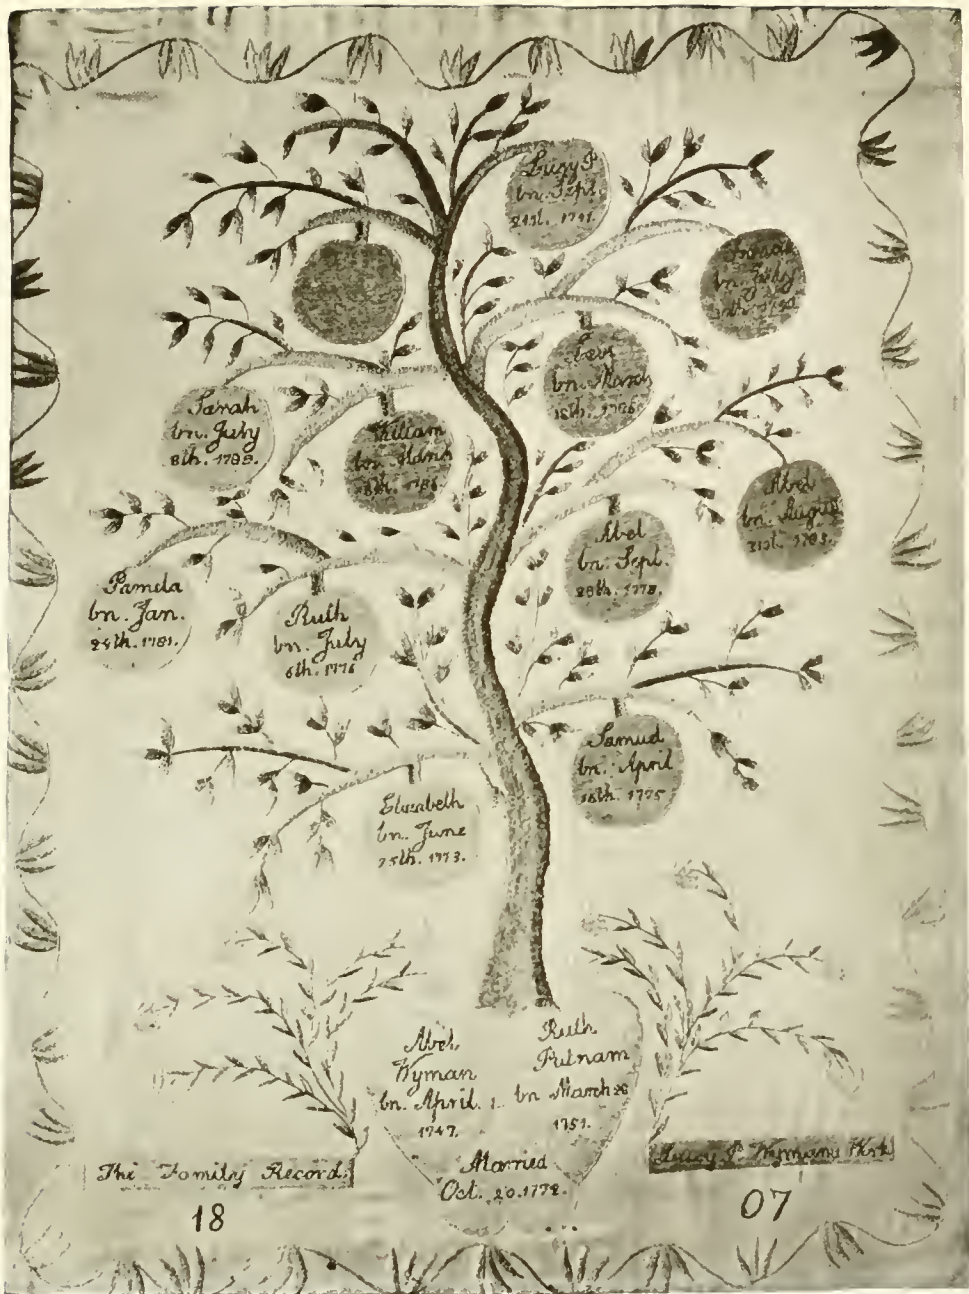 Lucy P
bn. Sept.
21st. 1791.
bn. July
Levi
bn. March
Sarah
bn. July
8th. 1788.
William
bn.
Abel
bn. August
31st. 1783.
Abel
bn. Sept.
28th. 1778.
Pamela
bn. Jan.
24th. 1781.
Ruth
bn. July
6th. 1776
Samuel
bn. April
16th. 1775
Elizabeth
bn. June
25th. 1773.
Abel
Wyman
bn. April. 1.
1747.
Ruth
Putnam
bn March 26
1751.
Married
Oct. 20. 1772.
The Family Record.
Lucy P Wymans Work
18
07